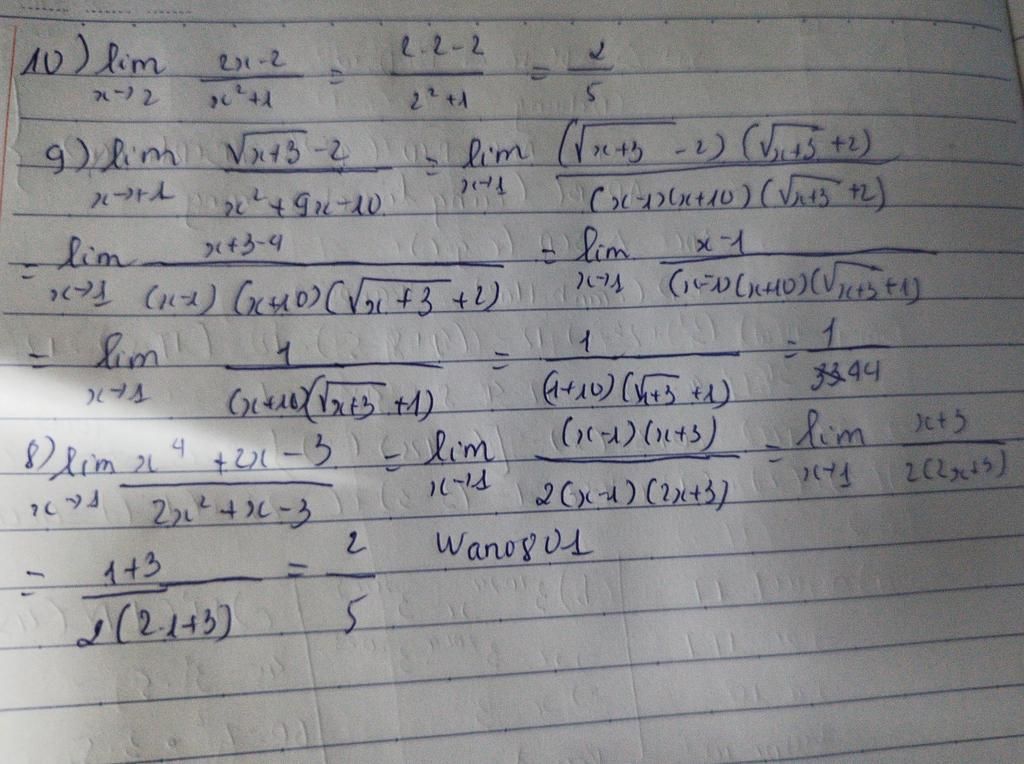 10) lim x→2 (2x-2)/(x²+1) = (2·2-2)/(2²+1) = 2/5
9) lim x→1 (√(x+3) -2)/(x²+9x-10) = lim x→1 ((√(x+3) -2)(√(x+3) +2))/((x-1)(x+10)(√(x+3) +2))
= lim x→1 (x+3-4)/((x-1)(x+10)(√(x+3) +2)) = lim x→1 (x-1)/((x-1)(x+10)(√(x+3) +1))
= lim x→1 1/((x+10)(√(x+3) +1)) = 1/((1+10)(√(1+3) +1)) = 1/44
8) lim x→1 (x⁴+2x-3)/(2x²+x-3) = lim x→1 ((x-1)(x+3))/(2(x-1)(2x+3)) = lim x→1 (x+3)/(2(2x+3))
= (1+3)/(2(2·1+3)) = 2/5 Wano801